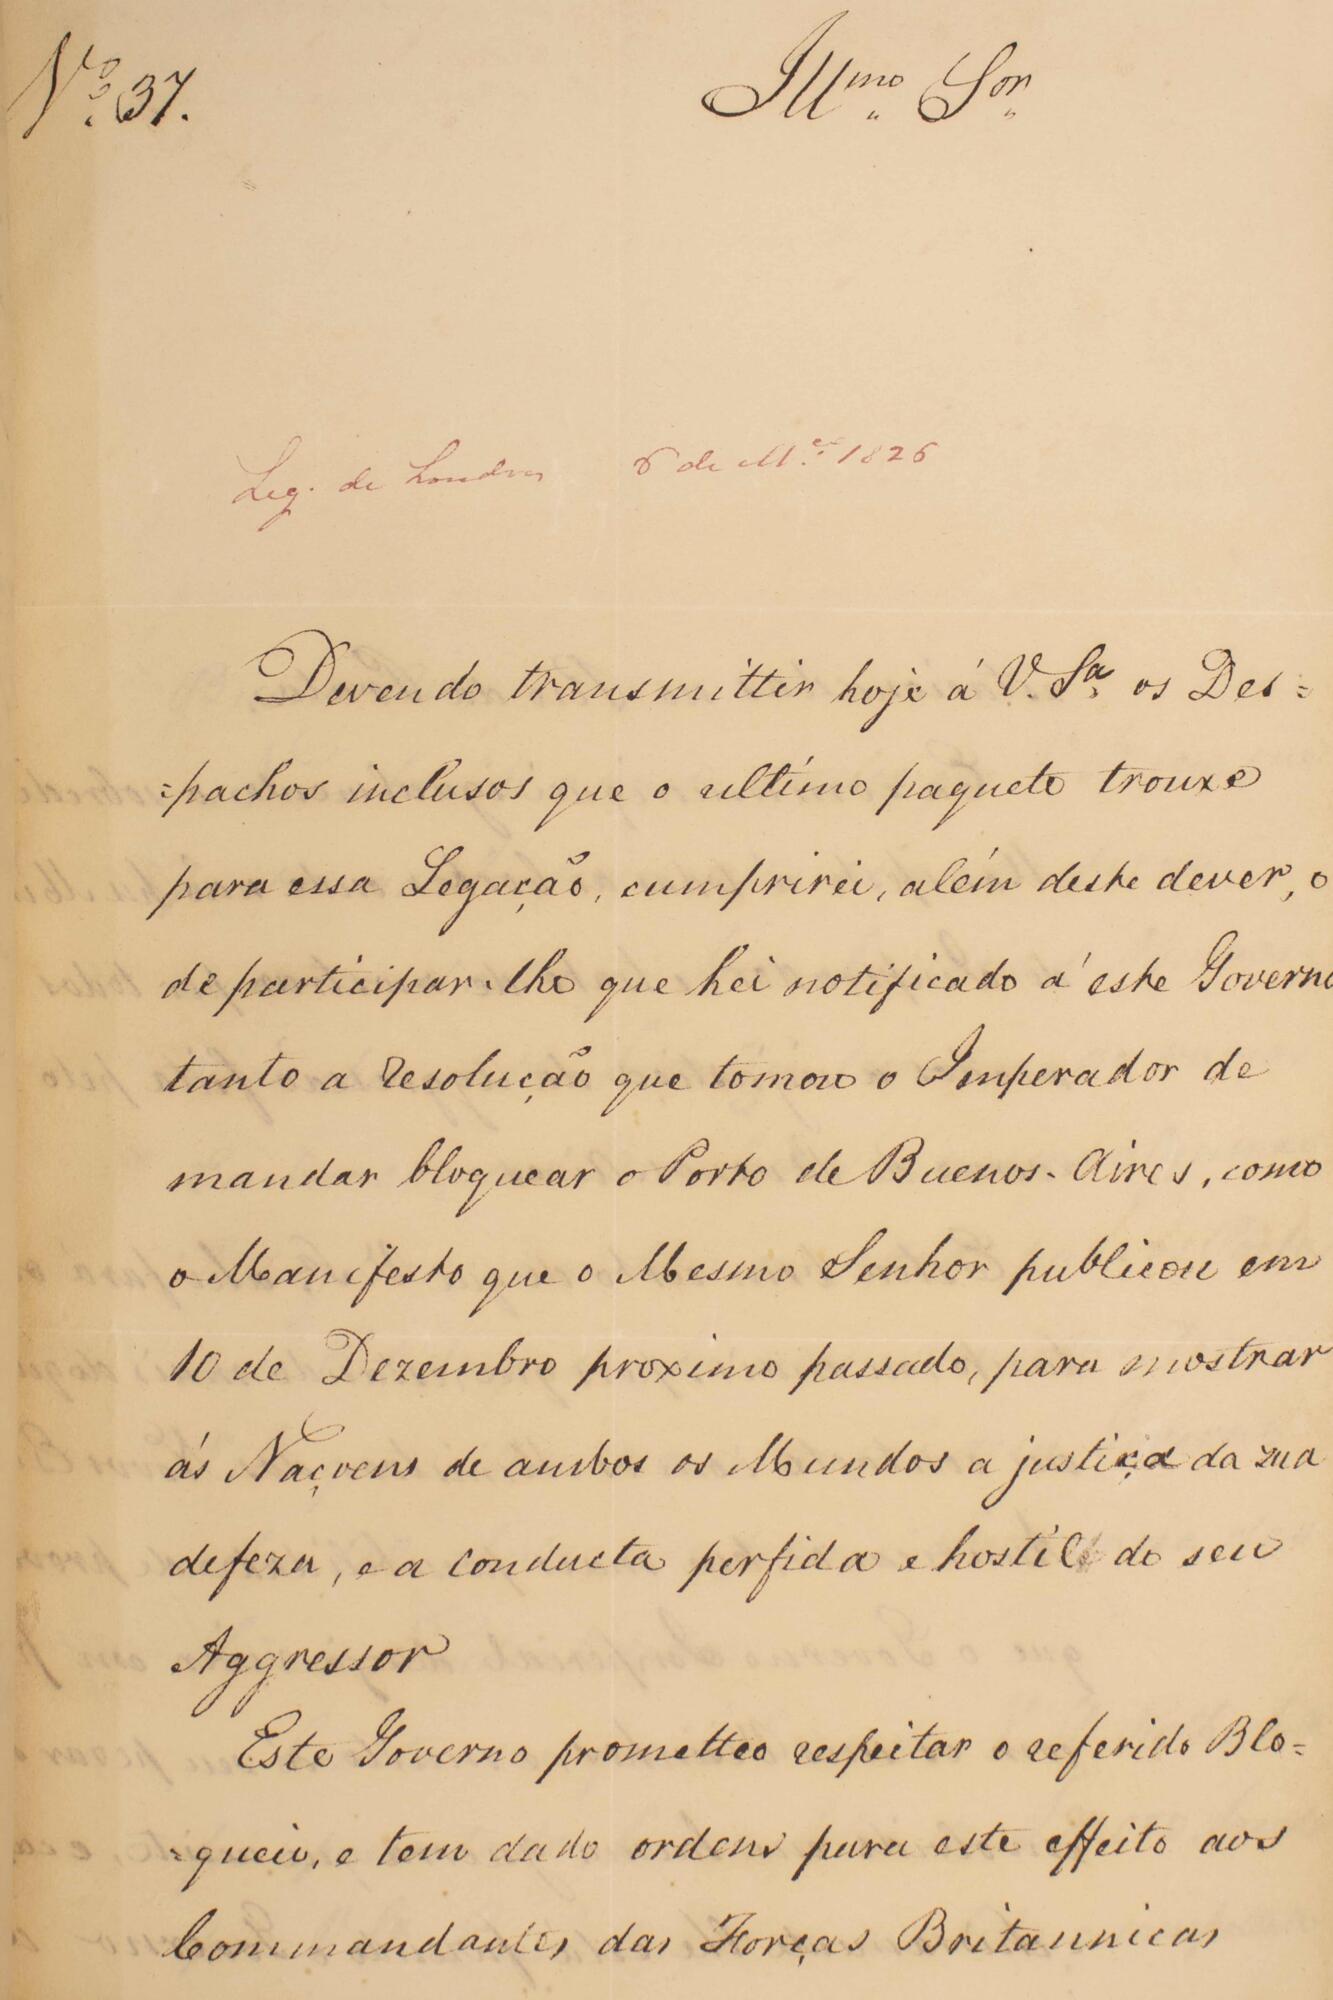 Nº 37.
Illmo Sor
Leg. de Londres 6 de Mço 1826
Devendo transmittir hoje á V. Sa. os Des=
=pachos inclusos que o ultimo paquete trouxe
para essa Legação, cumprirei, além deste dever, o
de participar-lhe que hei notificado á este Governo
tanto a resolução que tomou o Imperador de
mandar bloquear o Porto de Buenos-Aires, como
o Manifesto que o Mesmo Senhor publicou em
10 de Dezembro proximo passado, para mostrar
ás Naçoens de ambos os Mundos a justiça da sua
defeza, e a conducta perfida e hostil do seu
Aggressor
Este Governo prometteo respeitar o referido Blo=
=queio, e tem dado ordens para este effeito aos
Commandantes das Forças Britannicas